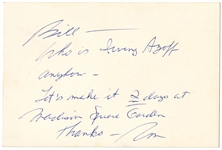 Bill —
Who is Irving Azoff
anyhow —
Let's make it 7 days at
Madison Square Garden
Thanks —